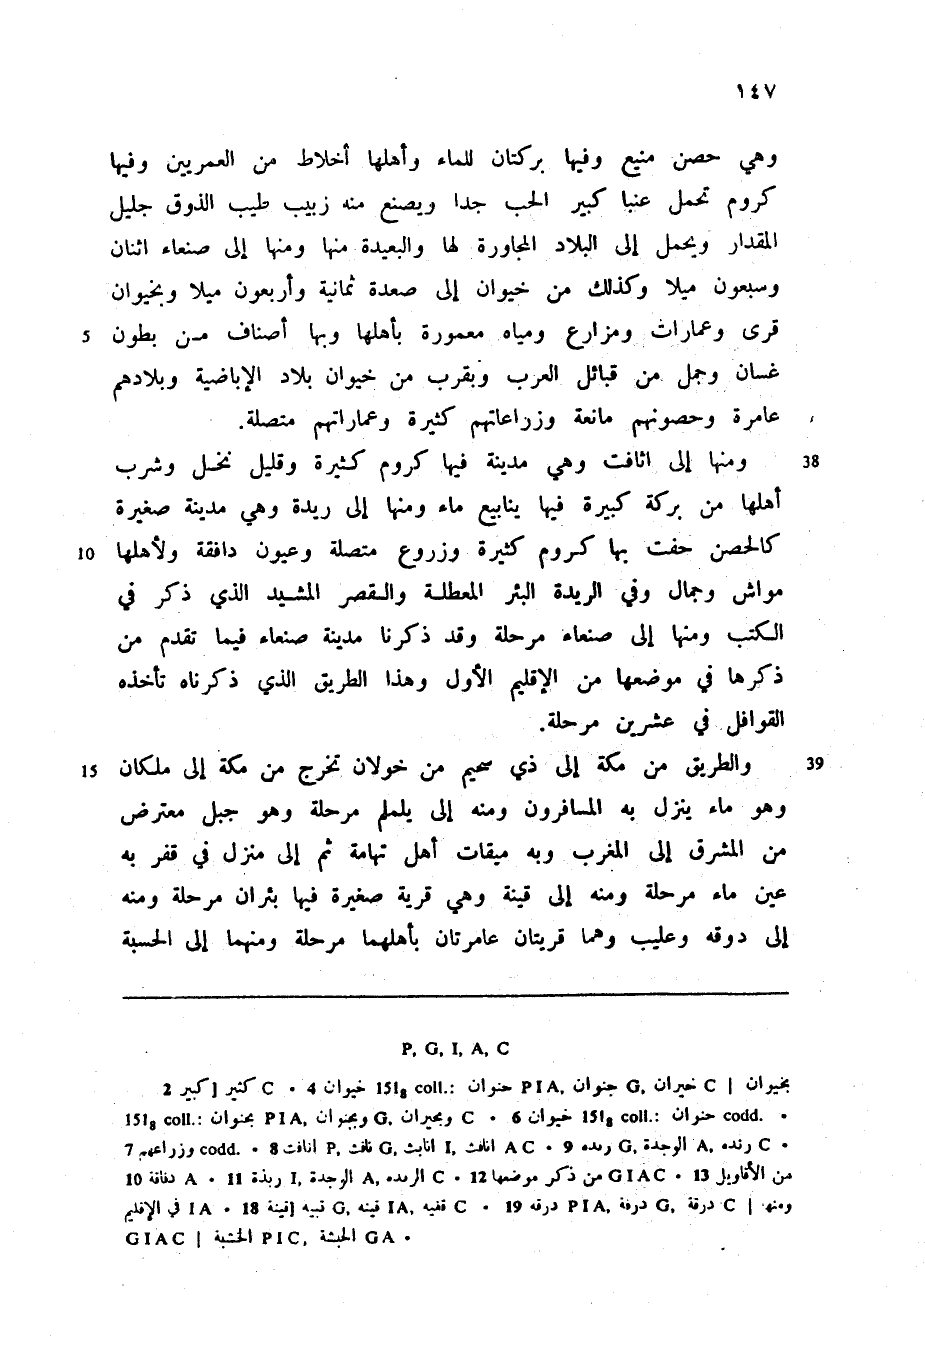 ١٤٧
وهي حصن منيع وفيها بركتان للماء وأهلها أخلاط من العمريين وفيها
كروم تحمل عنبا كبير الحب جدا ويصنع منه زبيب طيب الذوق جليل
المقدار ويحمل إلى البلاد المجاورة لها والبعيدة منها ومنها إلى صنعاء اثنان
وسبعون ميلا وكذلك من خيوان إلى صعدة ثمانية وأربعون ميلا وبخيوان
قرى وعمارات ومزارع ومياه معمورة بأهلها وبها أصناف من بطون 5
غسان وجمل من قبائل العرب وبقرب من خيوان بلاد الإباضية وبلادهم
عامرة وحصونهم مانعة وزراعاتهم كثيرة وعماراتهم متصلة.
38 ومنها إلى اثافت وهي مدينة فيها كروم كثيرة وقليل نخل وشرب
أهلها من بركة كبيرة فيها ينابيع ماء ومنها إلى ريدة وهي مدينة صغيرة
كالحصن حفت بها كروم كثيرة وزروع متصلة وعيون دافقة ولأهلها 10
مواش وجمال وفي الريدة البئر المعطلة والقصر المشيد الذي ذكر في
الكتب ومنها إلى صنعاء مرحلة وقد ذكرنا مدينة صنعاء فيما تقدم من
ذكرها في موضعها من الإقليم الأول وهذا الطريق الذي ذكرناه تأخذه
القوافل في عشرين مرحلة.
39 والطريق من مكة إلى ذي سحيم من خولان تخرج من مكة إلى ملكان 15
وهو ماء ينزل به المسافرون ومنه إلى يلملم مرحلة وهو جبل معترض
من المشرق إلى المغرب وبه ميقات أهل تهامة ثم إلى منزل في قفر به
عين ماء مرحلة ومنه إلى قينة وهي قرية صغيرة فيها بئران مرحلة ومنه
إلى دوقه وعليب وهما قريتان عامرتان بأهلهما مرحلة ومنهما إلى الحسبة
P, G, I, A, C
2 كبير] كثير C • 4 خيوان 151₈ coll.: جنوان PIA, حنوان G, خيران C | بخيوان
151₈ coll.: بجنوان PIA, وبجنوان G, وبحيران C • 6 خيوان 151₈ coll.: حنوان codd. •
7 وزراعهم codd. • 8 اثافت P, G, I, AC • 9 G, الوجدة A, C •
10 دفاقة A • 11 ربذة I, الوجدة A, C • 12 من ذكر موضعها GIAC • 13 من الأقاويل
IA • 18 قينة] G, IA, C • 19 PIA, G, درقة C |
GIAC | PIC, GA •